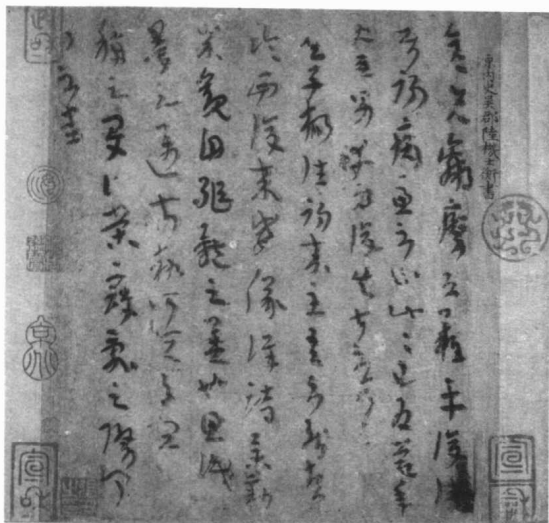 内史吳郡陸機士衡書
彦先羸瘵恐難平復往屬
初病慮不止此此已為慶承
使唯男幸為復失前憂耳
子楊往初來主吾不能盡
臨西復來威儀詳跱舉動
成觀自軀體之美也思識
量之邁前執所恒有宜
稱之夏伯榮寇亂之際聞
問不悉
宣和